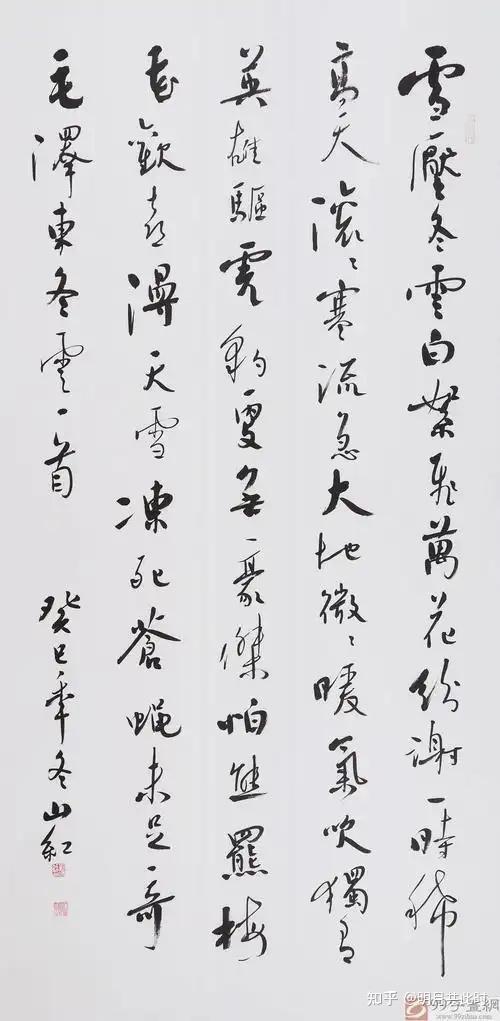 雪壓冬雲白絮飛萬花紛謝一時稀
高天滾〻寒流急大地微〻暖氣吹獨有
英雄驅虎豹更無豪傑怕熊羆梅
花歡喜漫天雪凍死蒼蝇未足奇
毛澤東冬雲一首
癸巳年冬山紅
知乎 @明月共此时
99字畫網
www.99zihua.com